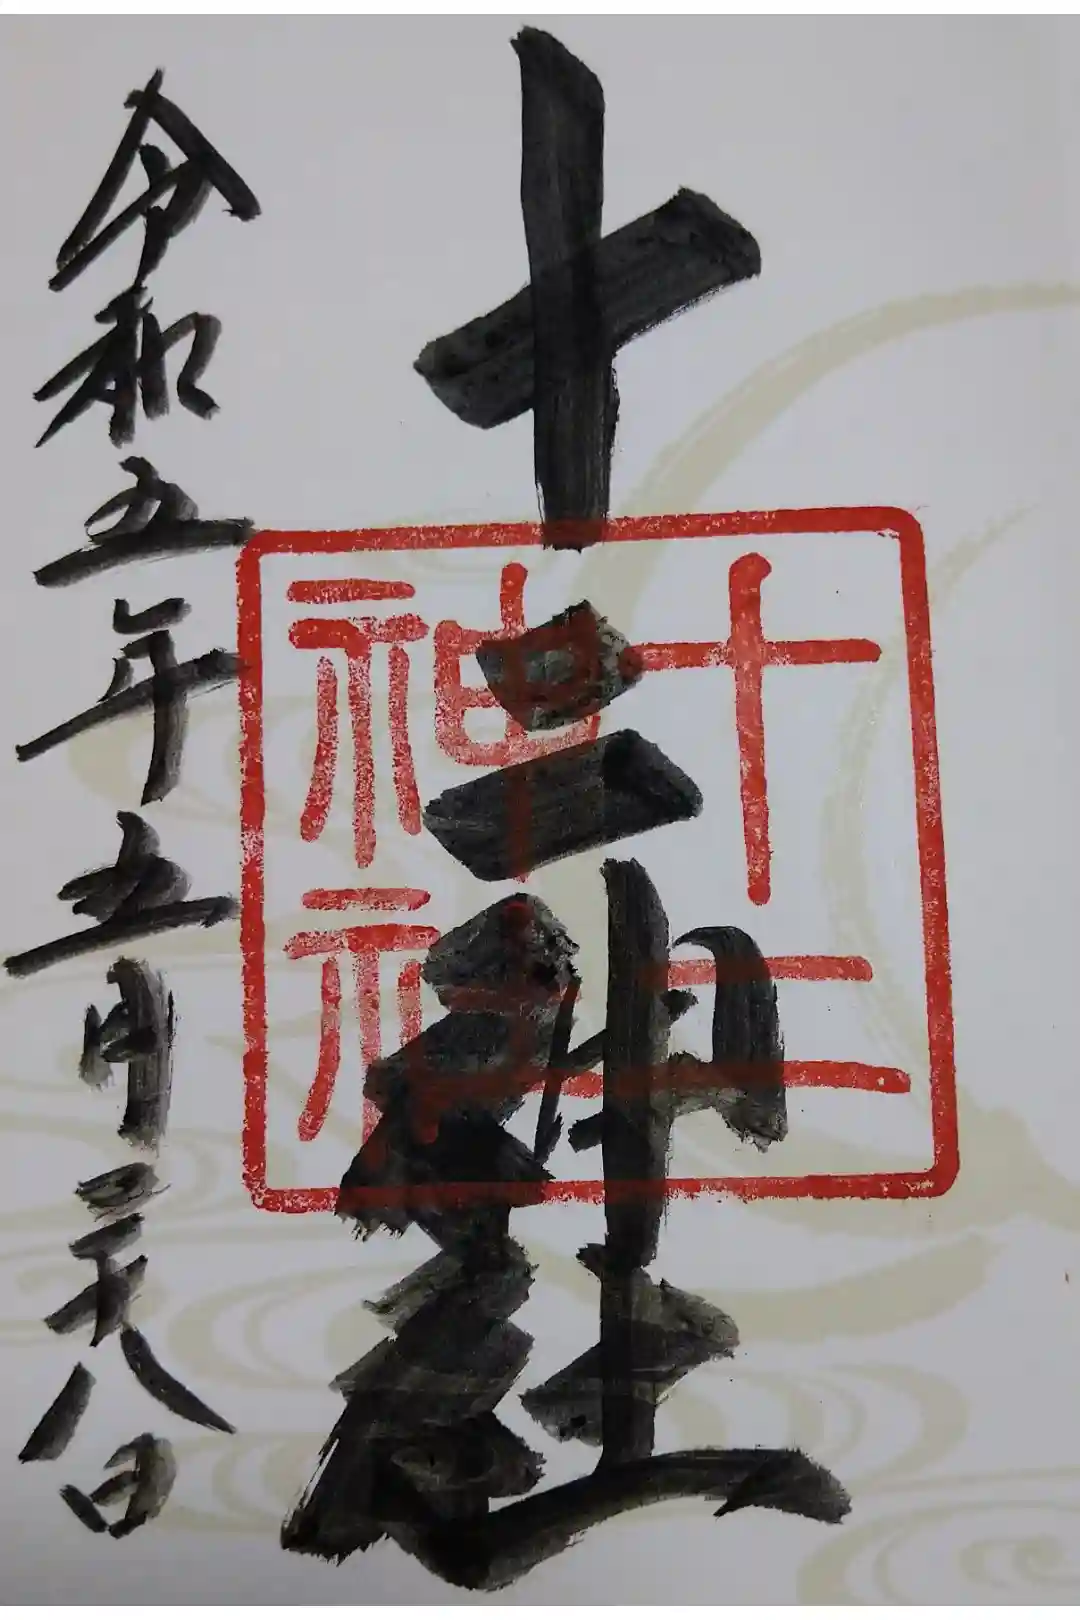 十二神社
十二
神社
令和五年五月二十八日